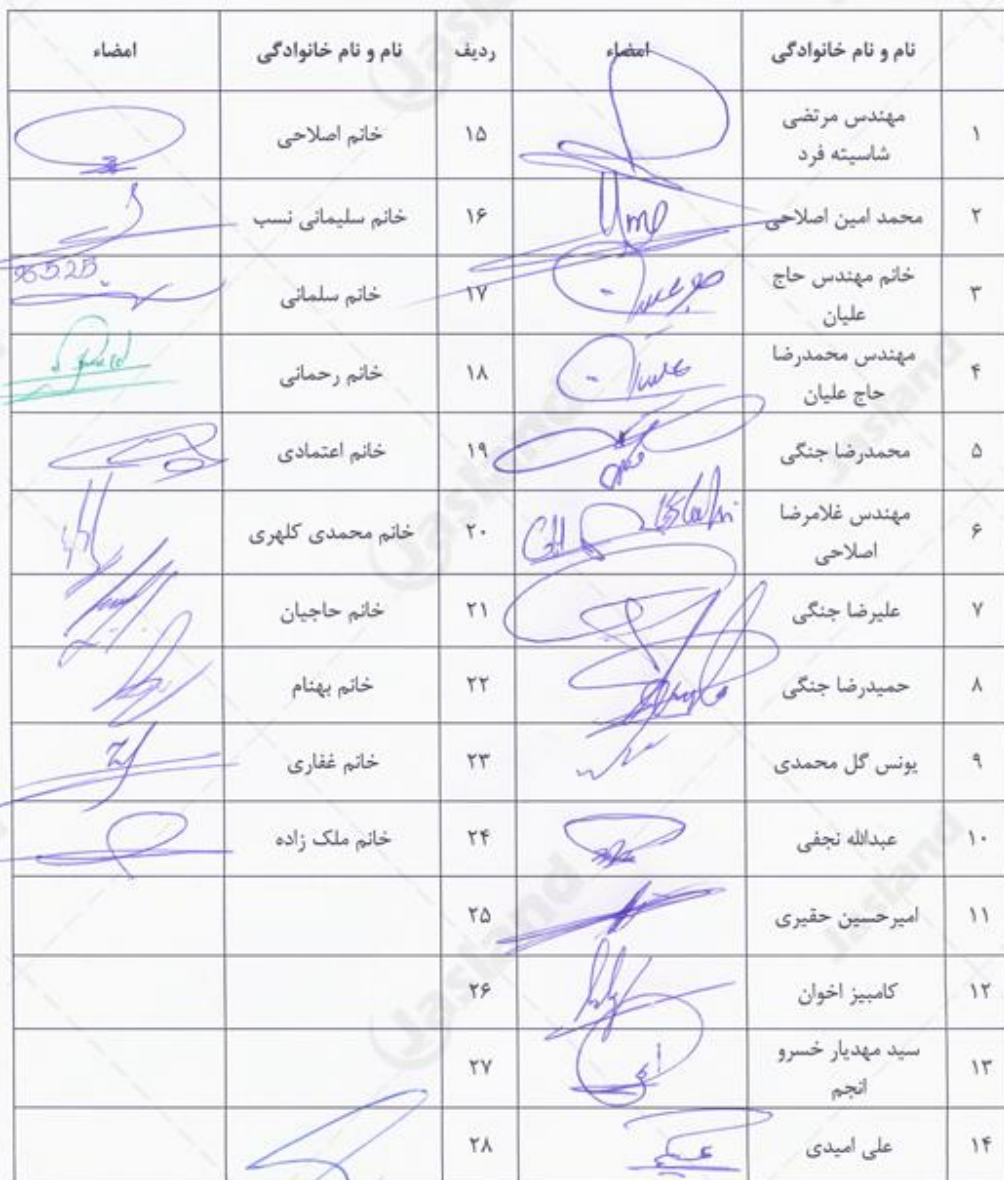 نام و نام خانوادگی امضاء ردیف نام و نام خانوادگی امضاء
۱ مهندس مرتضی ۱۵ خانم اصلاحی
شاسیته فرد
۲ محمد امین اصلاحی ۱۶ خانم سلیمانی نسب
۳ خانم مهندس حاج ۱۷ خانم سلمانی
علیان
۴ مهندس محمدرضا ۱۸ خانم رحمانی
حاج علیان
۵ محمدرضا جنگی ۱۹ خانم اعتمادی
۶ مهندس غلامرضا ۲۰ خانم محمدی کلهری
اصلاحی
۷ علیرضا جنگی ۲۱ خانم حاجیان
۸ حمیدرضا جنگی ۲۲ خانم بهنام
۹ یونس گل محمدی ۲۳ خانم غفاری
۱۰ عبدالله نجفی ۲۴ خانم ملک زاده
۱۱ امیرحسین حقیری ۲۵
۱۲ کامبیز اخوان ۲۶
۱۳ سید مهدیار خسرو ۲۷
انجم
۱۴ علی امیدی ۲۸
Jasland